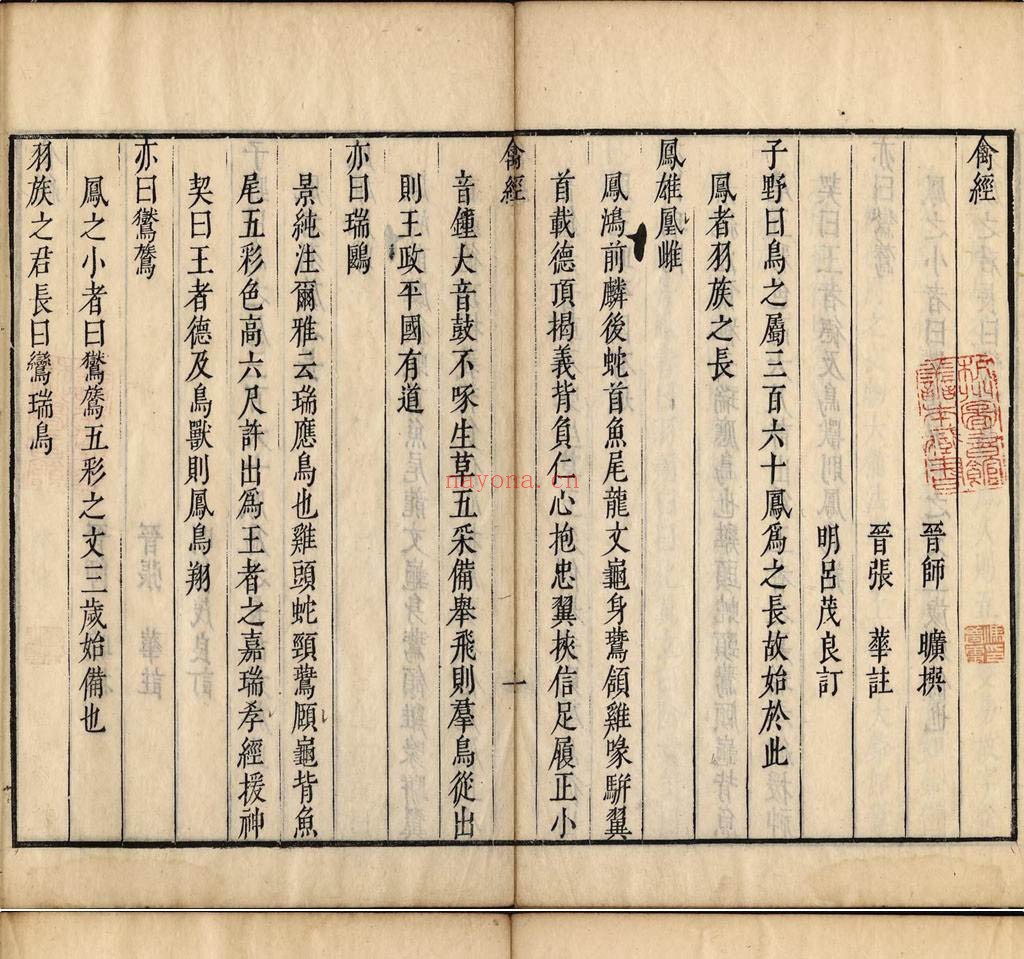 禽經
晉師 曠撰
晉張 華註
明呂茂良訂
子野曰鳥之屬三百六十鳳爲之長故始於此
鳳者羽族之長
鳳雄凰雌
鳳鴻前麟後蛇首魚尾龍文龜身鷰頷雞喙駢翼
首載德頂揭義背負仁心抱忠翼挾信足履正小
禽經
一
音鍾大音鼓不啄生草五采備舉飛則羣鳥從出
則王政平國有道
亦曰瑞鶠
景純注爾雅云瑞應鳥也雞頭蛇頸鷰頤龜背魚
尾五彩色高六尺許出爲王者之嘉瑞孝經援神
契曰王者德及鳥獸則鳳鳥翔
亦曰鸑鷟
鳳之小者曰鸑鷟五彩之文三歲始備也
羽族之君長曰鸞瑞鳥
nayona.cn